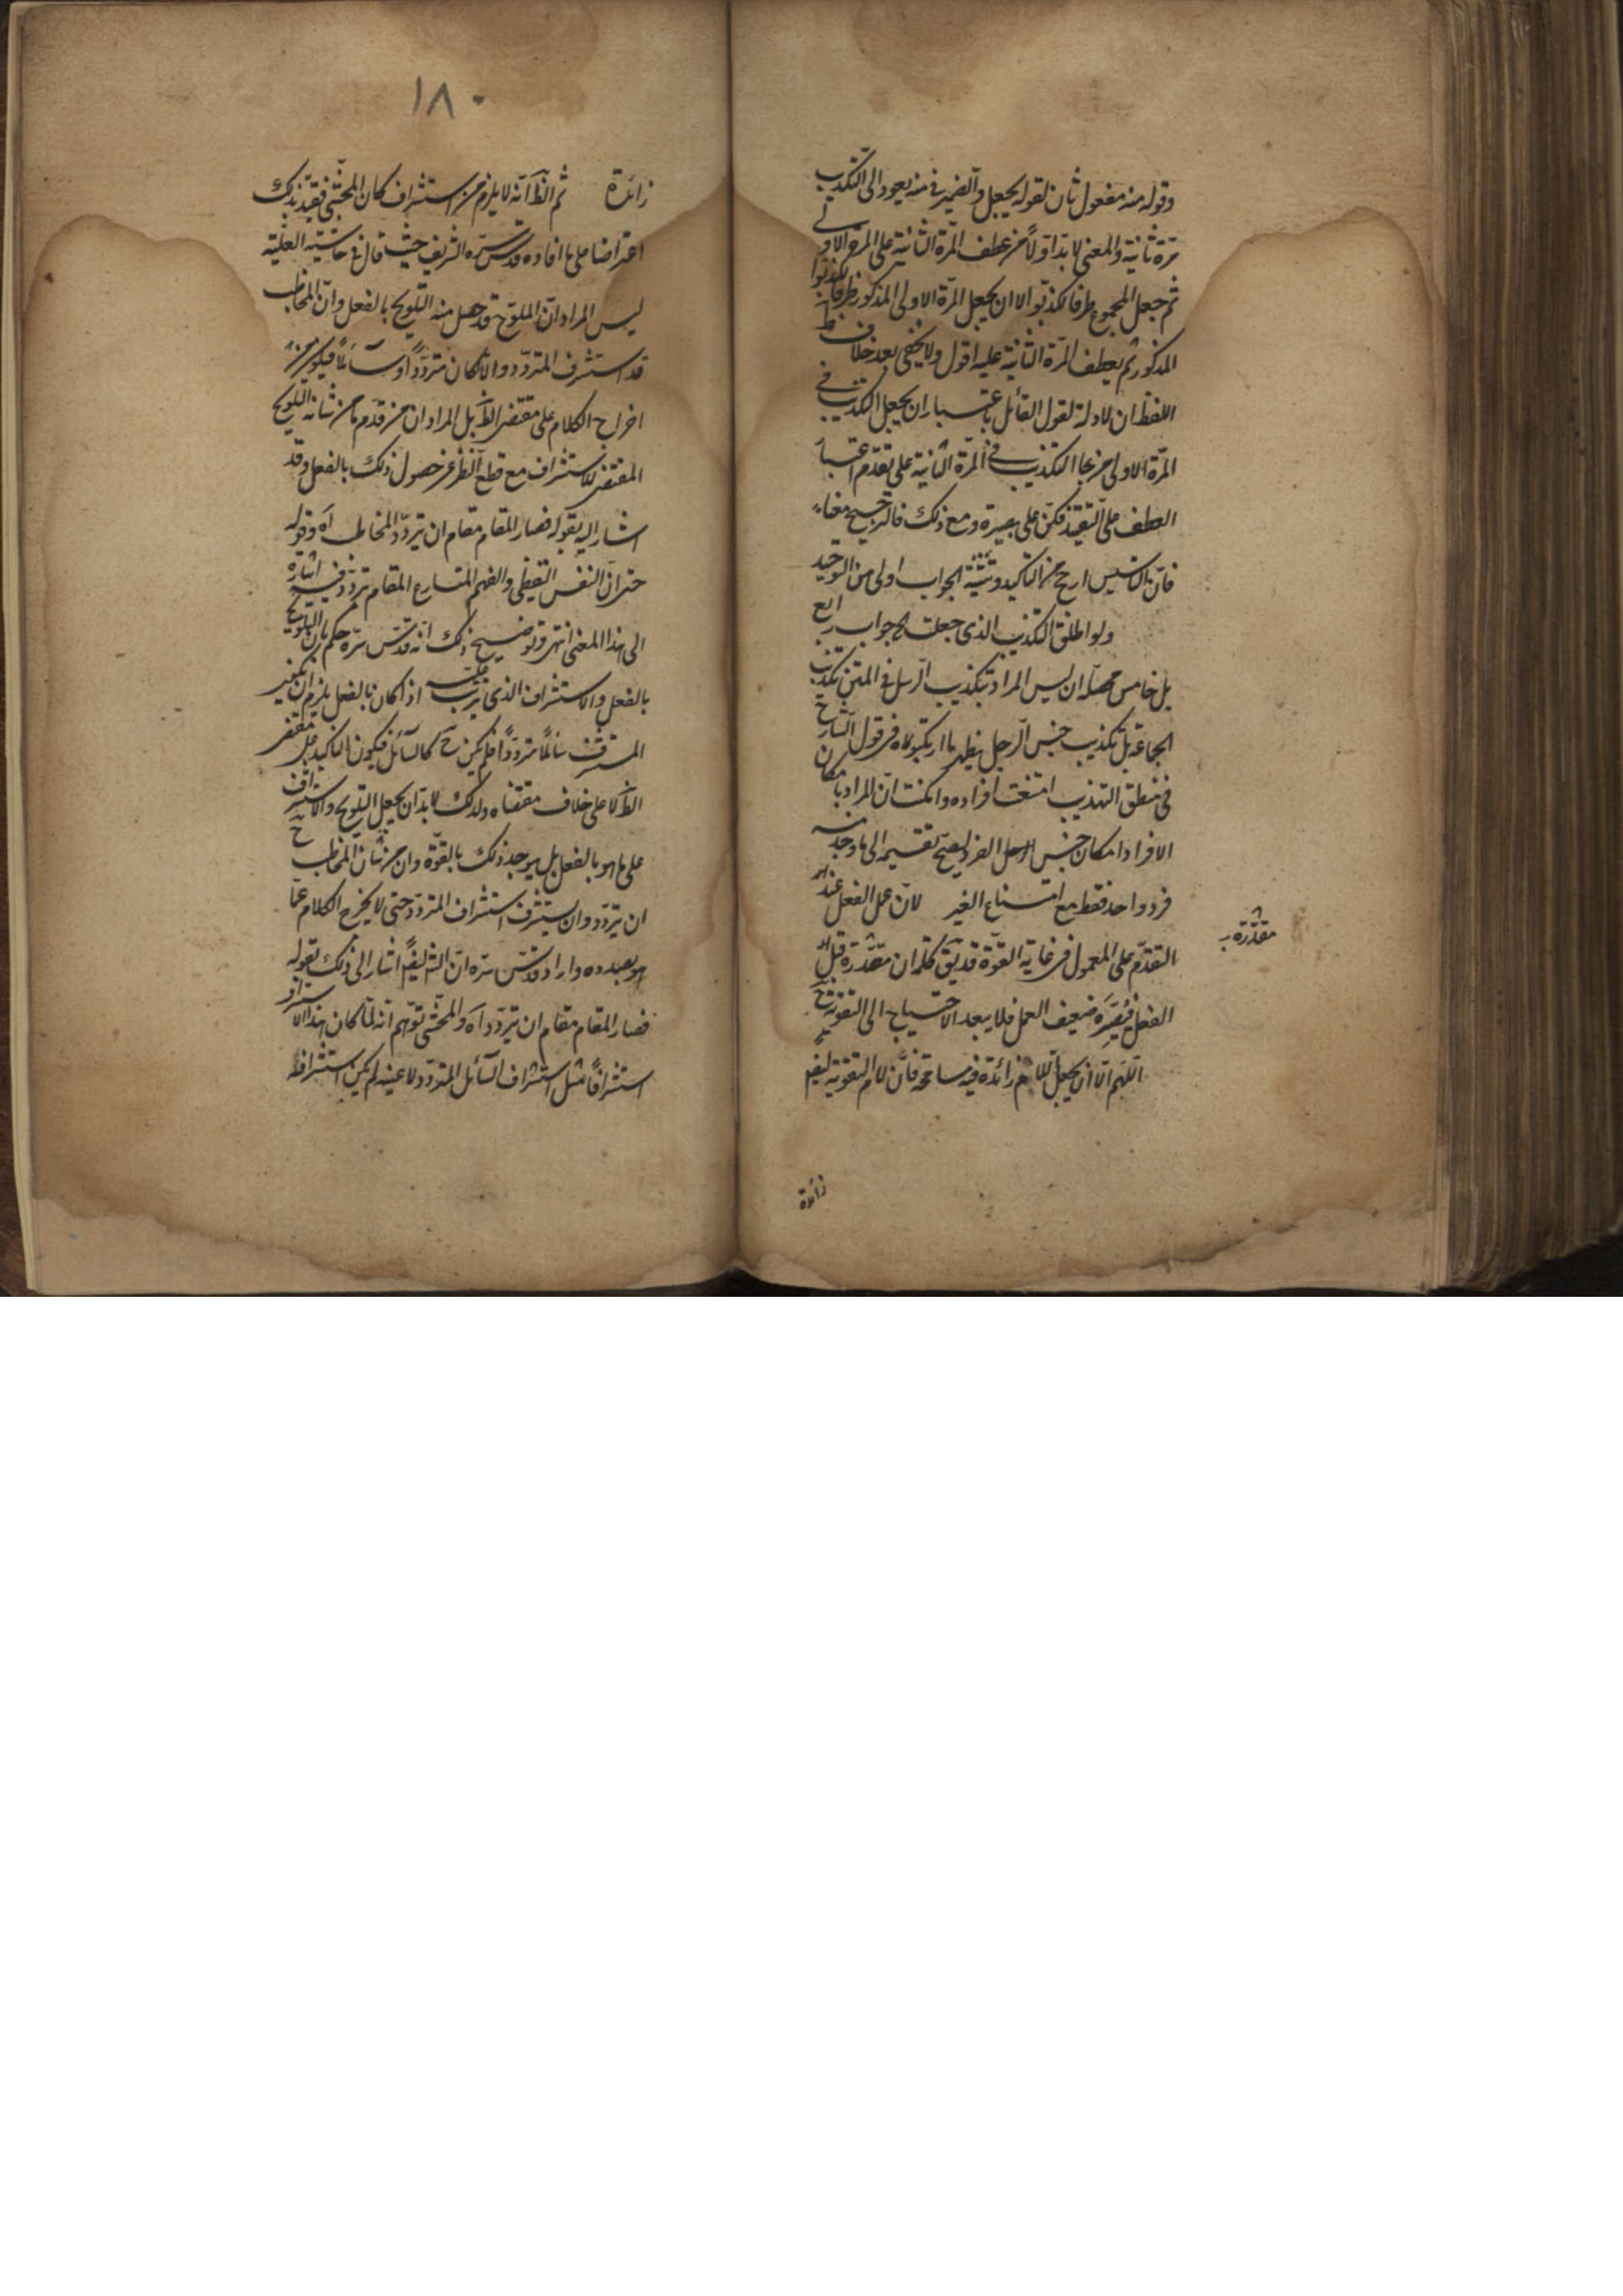 وقوله منه مفعول ثان لقوله يجعل والضمير في منه يعود الى التكذيب
مرة ثانية والمعنى لا بد اولا من عطف المرة الثانية على المرة الاولى
ثم جعل المجموع ظرفا لكذبوا لا ان يجعل المرة الاولى المذكور ظرفا لكذبوا
المذكور ثم يعطف المرة الثانية عليه اقول ولا يخفى بعد خلاف
اللفظ ان لا دلة لقول القائل باعتبار ان يجعل التكذيب في
المرة الاولى التكذيب في المرة الثانية على تقدم اعتبار
العطف على التقيد فكن على بصيرة ومع ذلك فالترجيح معناه
فان التاسيس ارجح من التاكيد وتثنية الجواب اولى من التوحيد
ولو اطلق التكذيب الذي جعلته جواب رابع
بل خامس محصله ان ليس المراد بتكذيب الرسل في المتن تكذيب
الجماعة بل تكذيب جنس الرجل نظير ما ارتكبوه في قول الشارح
في منطق التهذيب امتنعت افراده وامكنت ان المراد بامكان
الافراد امكان جنس الرجل الفرد ليصح تقسيمه الى ما وجد منه
فرد واحد فقط مع امتناع الغير لان عمل الفعل عند
التقدم على المعمول في غاية القوة قد يق كلمة ان مقدرة قبل
الفعل فيصيره ضعيف العمل فلا يبعد الاحتياج الى التقوية ح
اللهم الا ان يجعل اللام زائدة فيه سامحة فان لام التقوية ليس
مقدرة
زائدة
١٨٠
زائدة ثم الظ انه لا يلزم من استشراف كان المحشى فقيد بذلك
اعتراضا على ما افاده قدس سره الشريف حيث قال في حاشيته
ليس المراد ان الملوح قد حصل منه التلويح بالفعل وان المخاطب
قد استشرف المتردد والا كان مترددا وسائلا فيكون من
اخراج الكلام على مقتضى الظ بل المراد ان من قدم ما من شانه التلويح
المقتضى للاستشراف مع قطع النظر عن حصول ذلك بالفعل وقد
اشار اليه بقوله فصار المقام مقام ان يتردد المخاطب اه وقوله
حتى ان النفس اليقظى والفهم المتسارع المقام تردد فيه اشارة
الى هذا المعنى انتهى وتوضيح ذلك انه قدس سره حكم بان التلويح
بالفعل والاستشراف الذي يترتب عليه اذا كان بالفعل يلزم ان يكون
المستشرف سائلا مترددا فلم يكن ح كالسائل فيكون التاكيد على مقتضى
الظ لا على خلاف مقتضاه ولذلك لا بد ان يجعل التلويح والاستشراف
على ما هو بالفعل بل يوجد ذلك بالقوة وان من شان المخاطب ح
ان يتردد وان يستشرف استشراف المتردد حتى لا يخرج الكلام عما
هو بصدده واراد قدس سره ان الش ايضا اشار الى ذلك بقوله
فصار المقام مقام ان يتردد اه والمحشى توهم انه لما كان هذا الاستشراف
استشرافا مثل استشراف السائل المتردد لا عينه لم يكن استشرافه